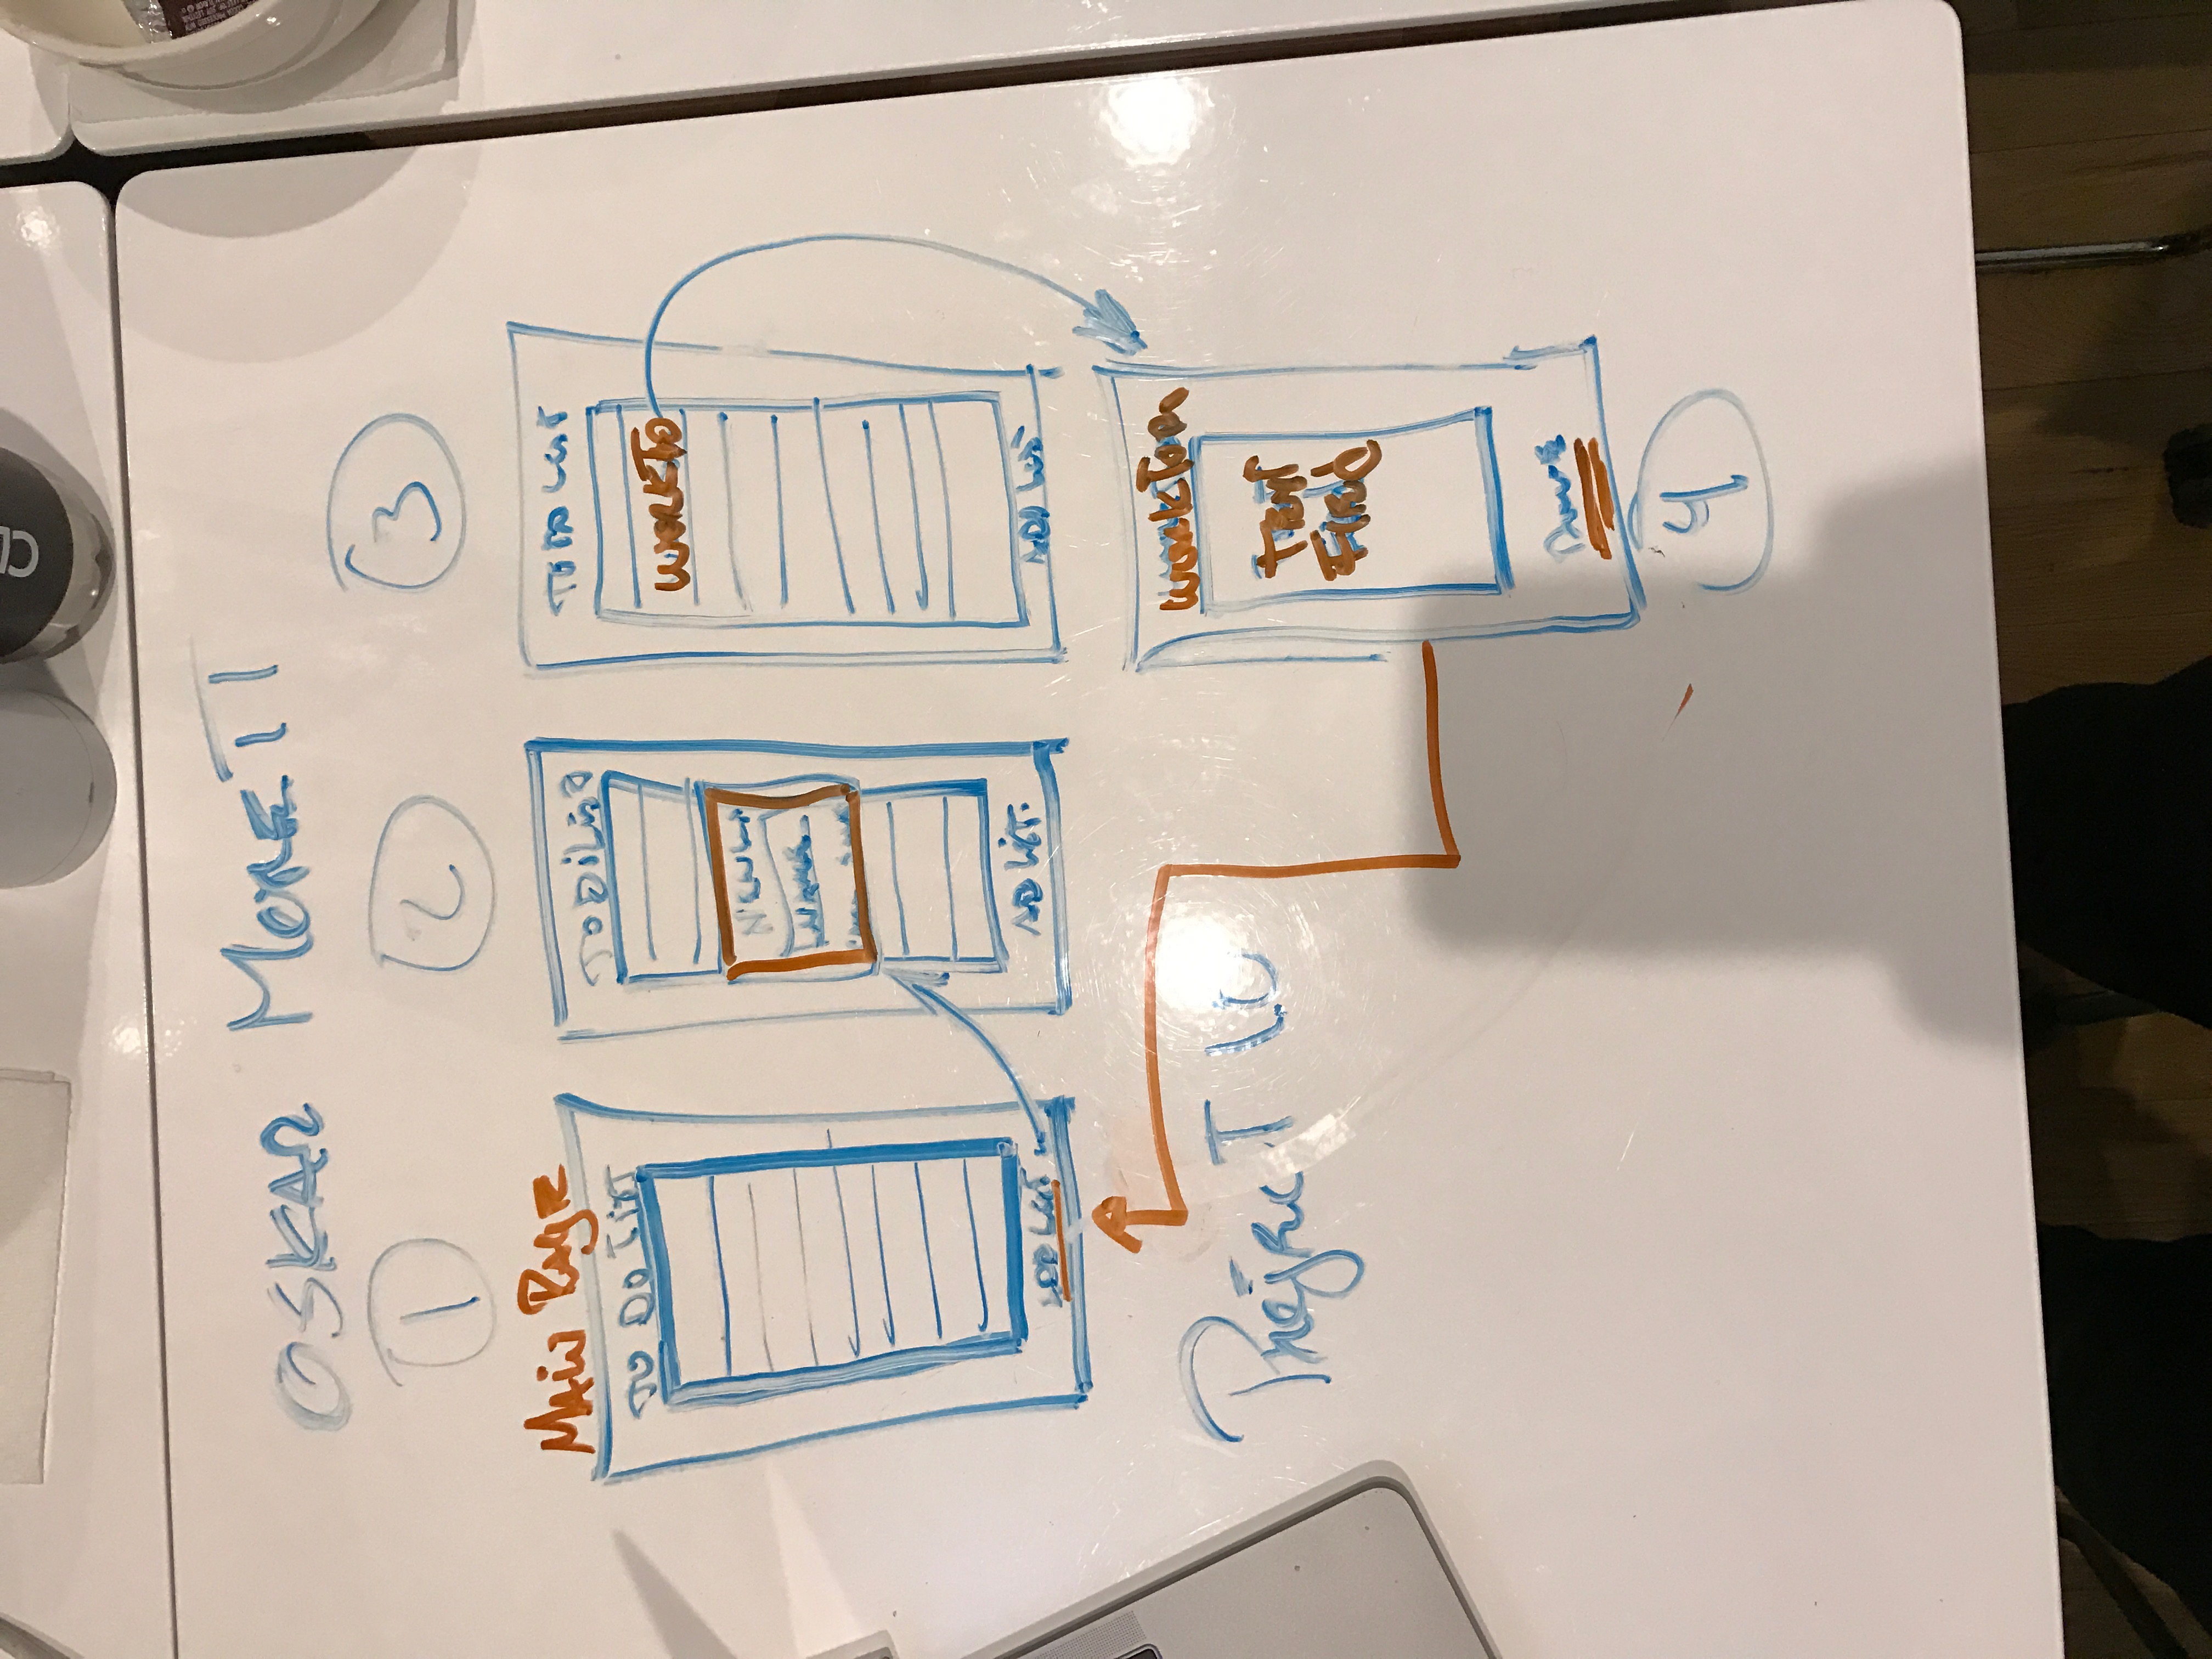 OSKAR MORETTI
1
2
3
MAIN PAGE
TO DO LIST
ADD LIST
TO DO LIST
NEW
NAME
ADD LIST
TO DO LIST
WORK TO
ADD LIST
WORK TO DO
TEXT
FIELD
DONE
4
PROJECT